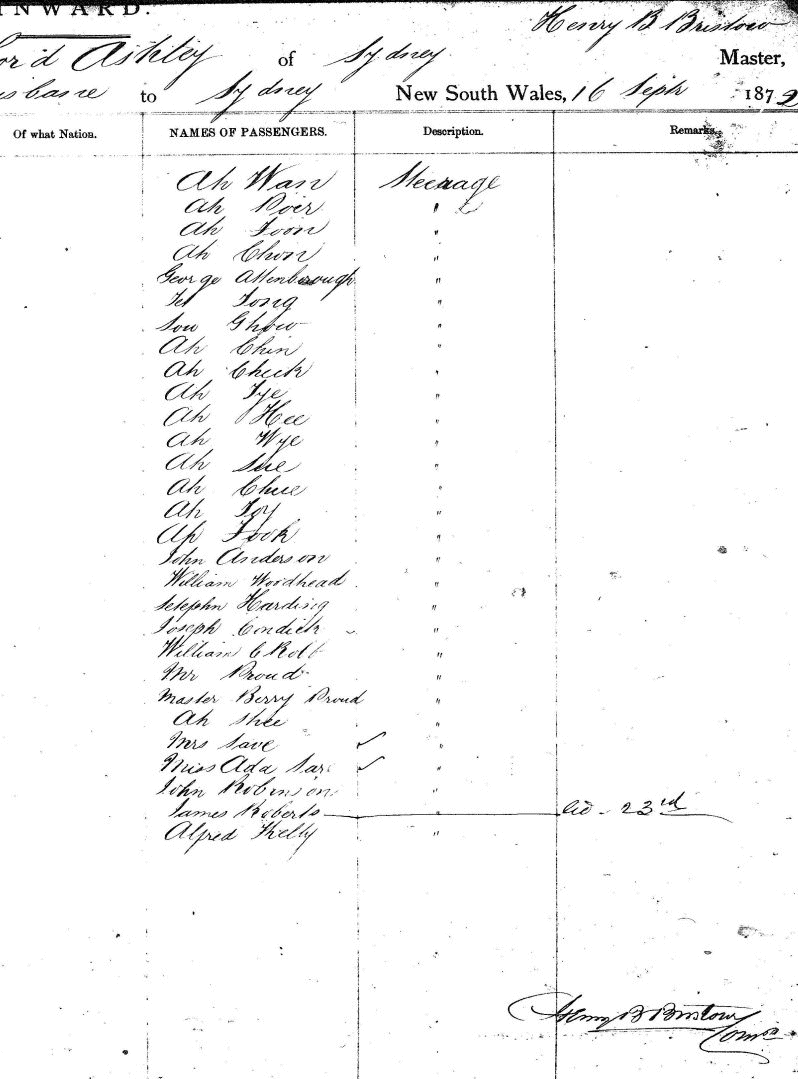 INWARD.
Henry B Bristow
or'd Ashley of Sydney Master,
isbane to Sydney New South Wales, 16 Sept 1872
Of what Nation. NAMES OF PASSENGERS. Description. Remarks.
Ah Wan Steerage
Ah Poir "
Ah Foon "
Ah Chon "
George Attenborough "
Tong "
Sow Ghow "
Ah Chin "
Ah Cheek "
Ah Tye "
Ah Hee "
Ah Wye "
Ah Sue "
Ah Chue "
Ah Foy "
Ah Fook "
John Anderson "
William Woodhead "
Setephn Harding "
Joseph Condick "
William C Robb "
Mr Proud "
Master Berry Proud "
Ah Shee "
Mrs Save ✓ "
Miss Ada Sav ✓ "
John Robinson "
James Roberts " 23rd
Alfred Kelly "
Henry B Bristow
Comr